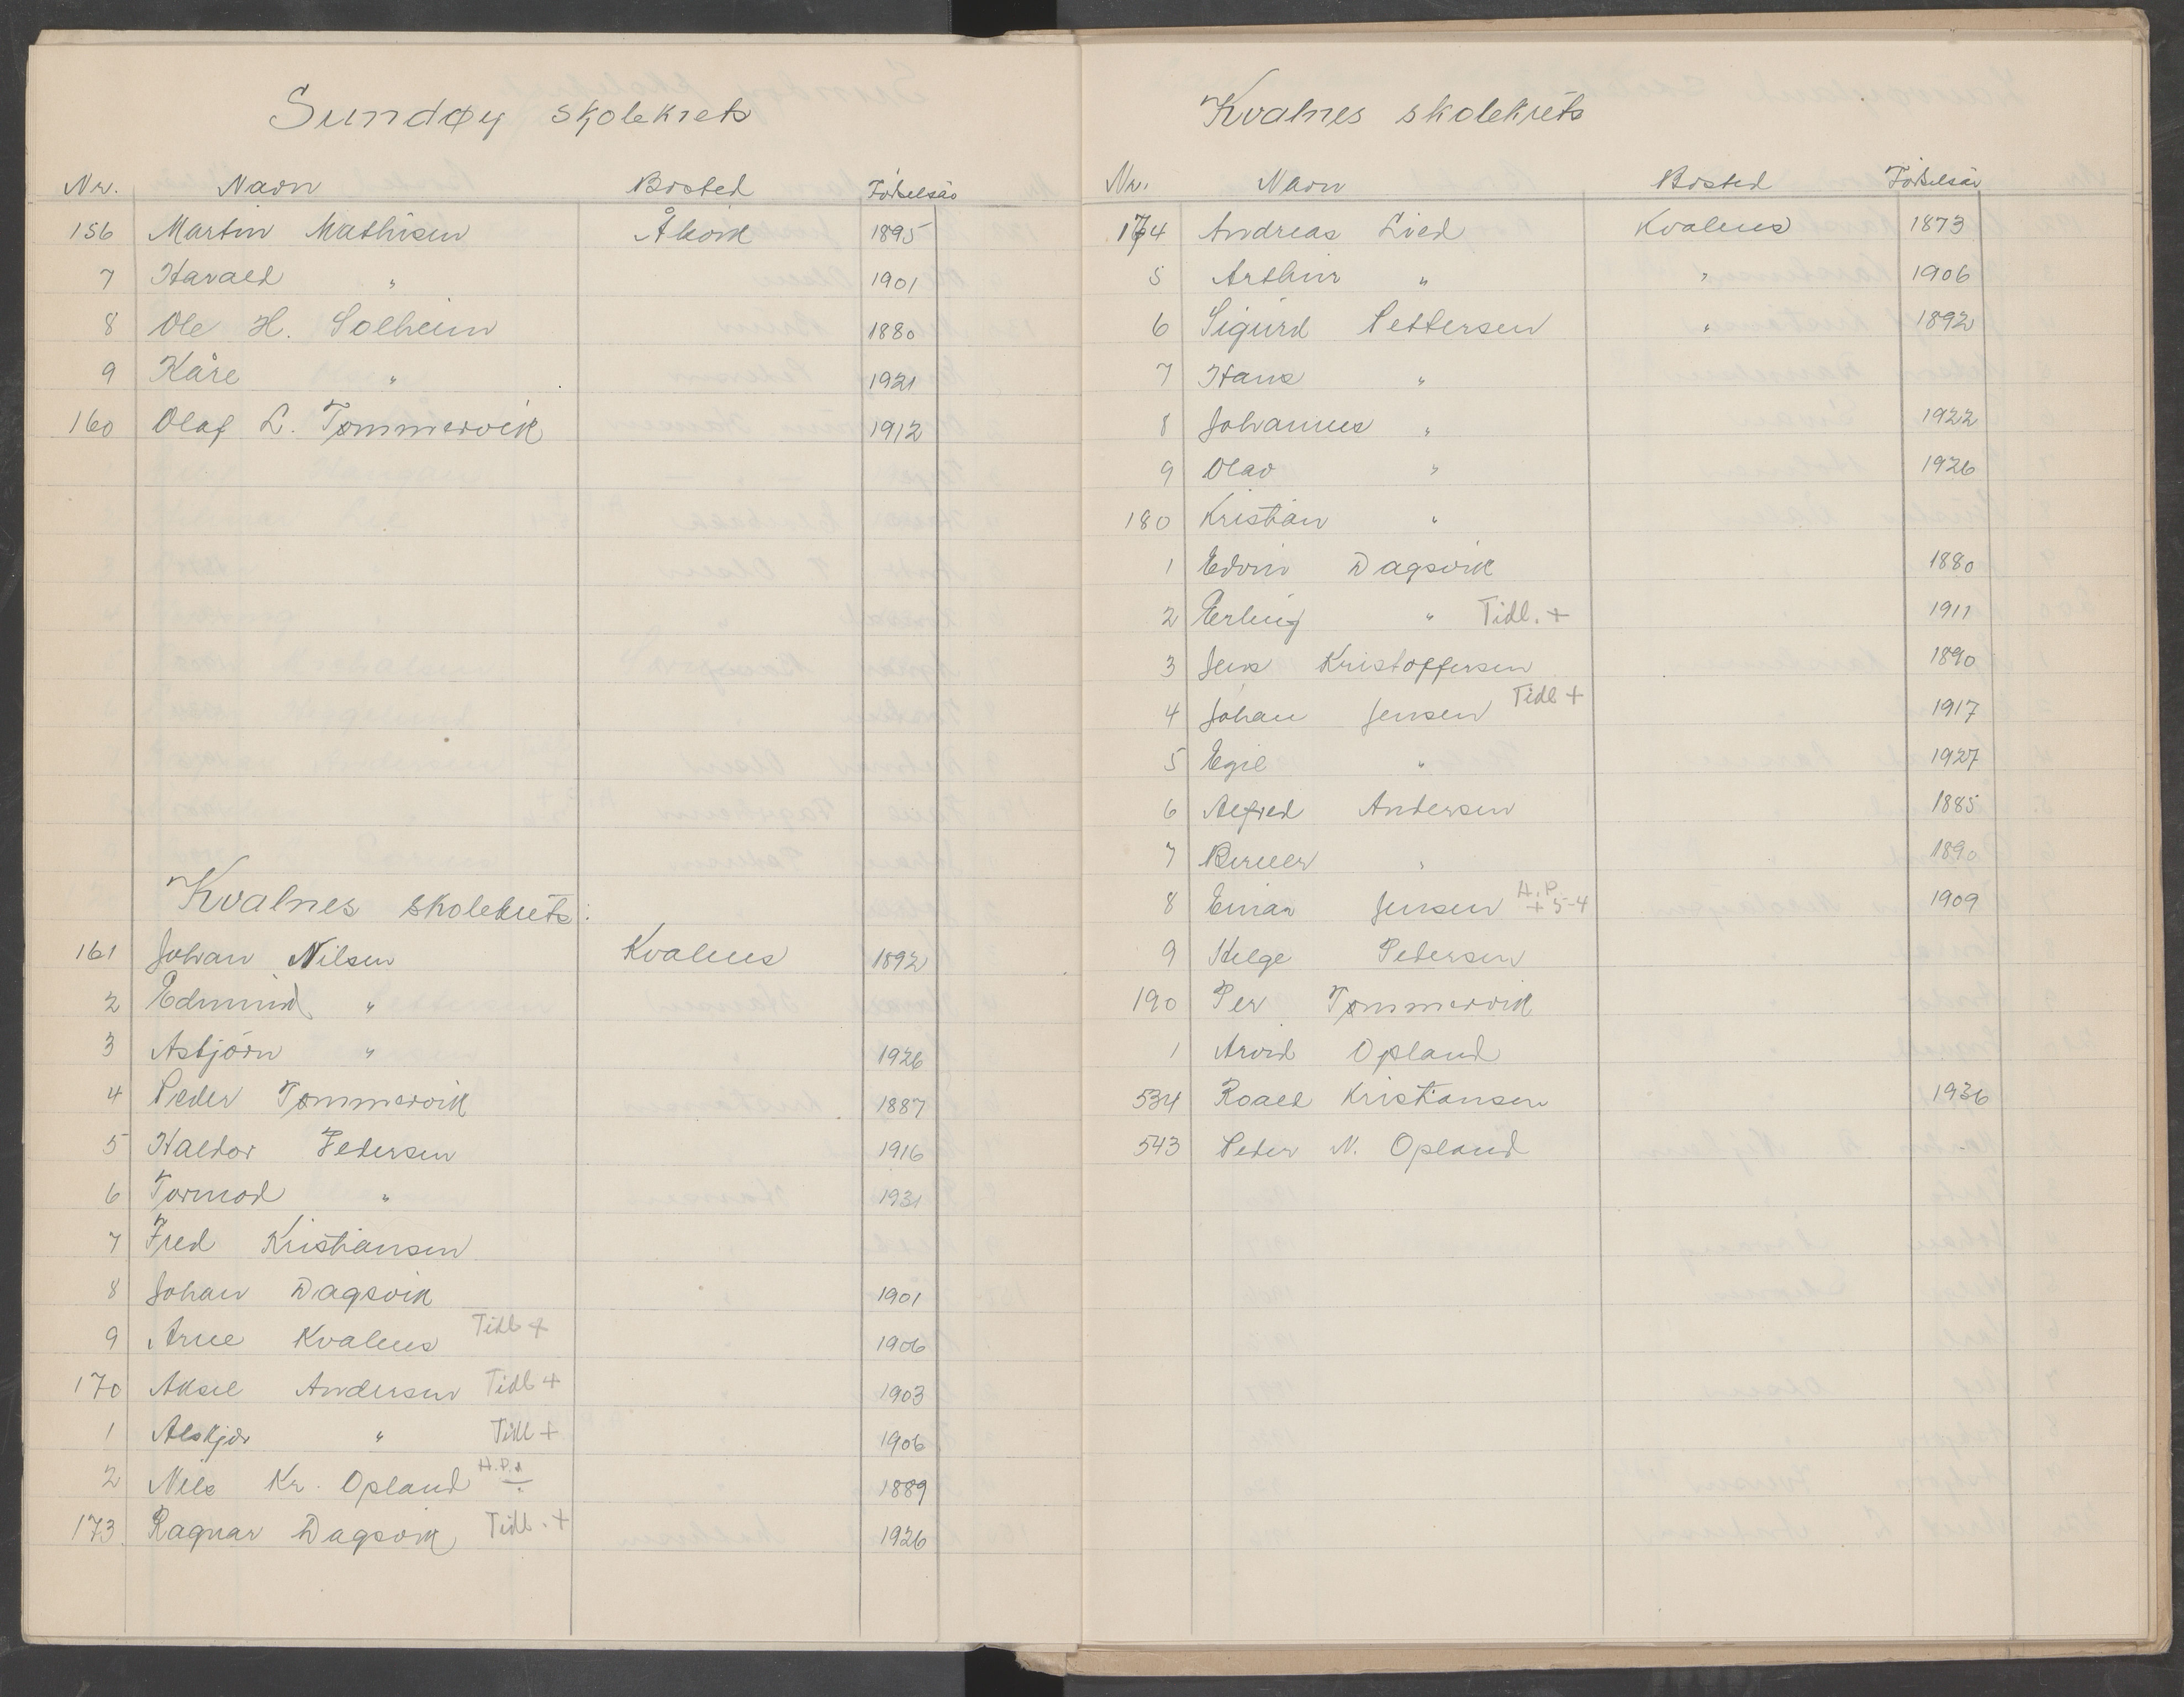 Sundøy skolekrets
Nr. Navn Bosted Fødselsår
156 Martin Mathisen Åkvik 1895
7 Harald " 1901
8 Ole H. Solheim 1880
9 Kåre " 1921
160 Olaf L. Tømmervik 1912
Kvalnes skolekrets:
161 Johan Nilsen Kvalnes 1892
2 Edmund "
3 Asbjørn " 1926
4 Peder Tømmervik 1887
5 Haldor Pedersen 1916
6 Tormod " 1931
7 Fred Kristiansen
8 Johan Dagsvik 1901
9 Arne Kvalnes Tidl + 1906
170 Aksel Andersen Tidl + 1903
1 Alskjer " Tidl + 1906
2 Nils Kr. Opland H.P. ÷ 1889
173 Ragnar Dagsvik Tidl. + 1926
Kvalnes skolekrets
Nr. Navn Bosted Fødselsår
174 Andreas Lied Kvalnes 1873
5 Arthur " " 1906
6 Sigurd Pettersen " 1892
7 Hans "
8 Johannes " 1922
9 Olav " 1926
180 Kristian "
1 Edvin Dagsvik 1880
2 Erling " Tidl. + 1911
3 Jens Kristoffersen 1890
4 Johan Jensen Tidl + 1917
5 Egil " 1927
6 Alfred Andersen 1885
7 Berner " 1890
8 Einar Jensen H.P. + 5-4 1909
9 Helge Pedersen
190 Per Tømmervik
1 Arvid Opland
534 Roald Kristiansen 1936
543 Peder N. Opland